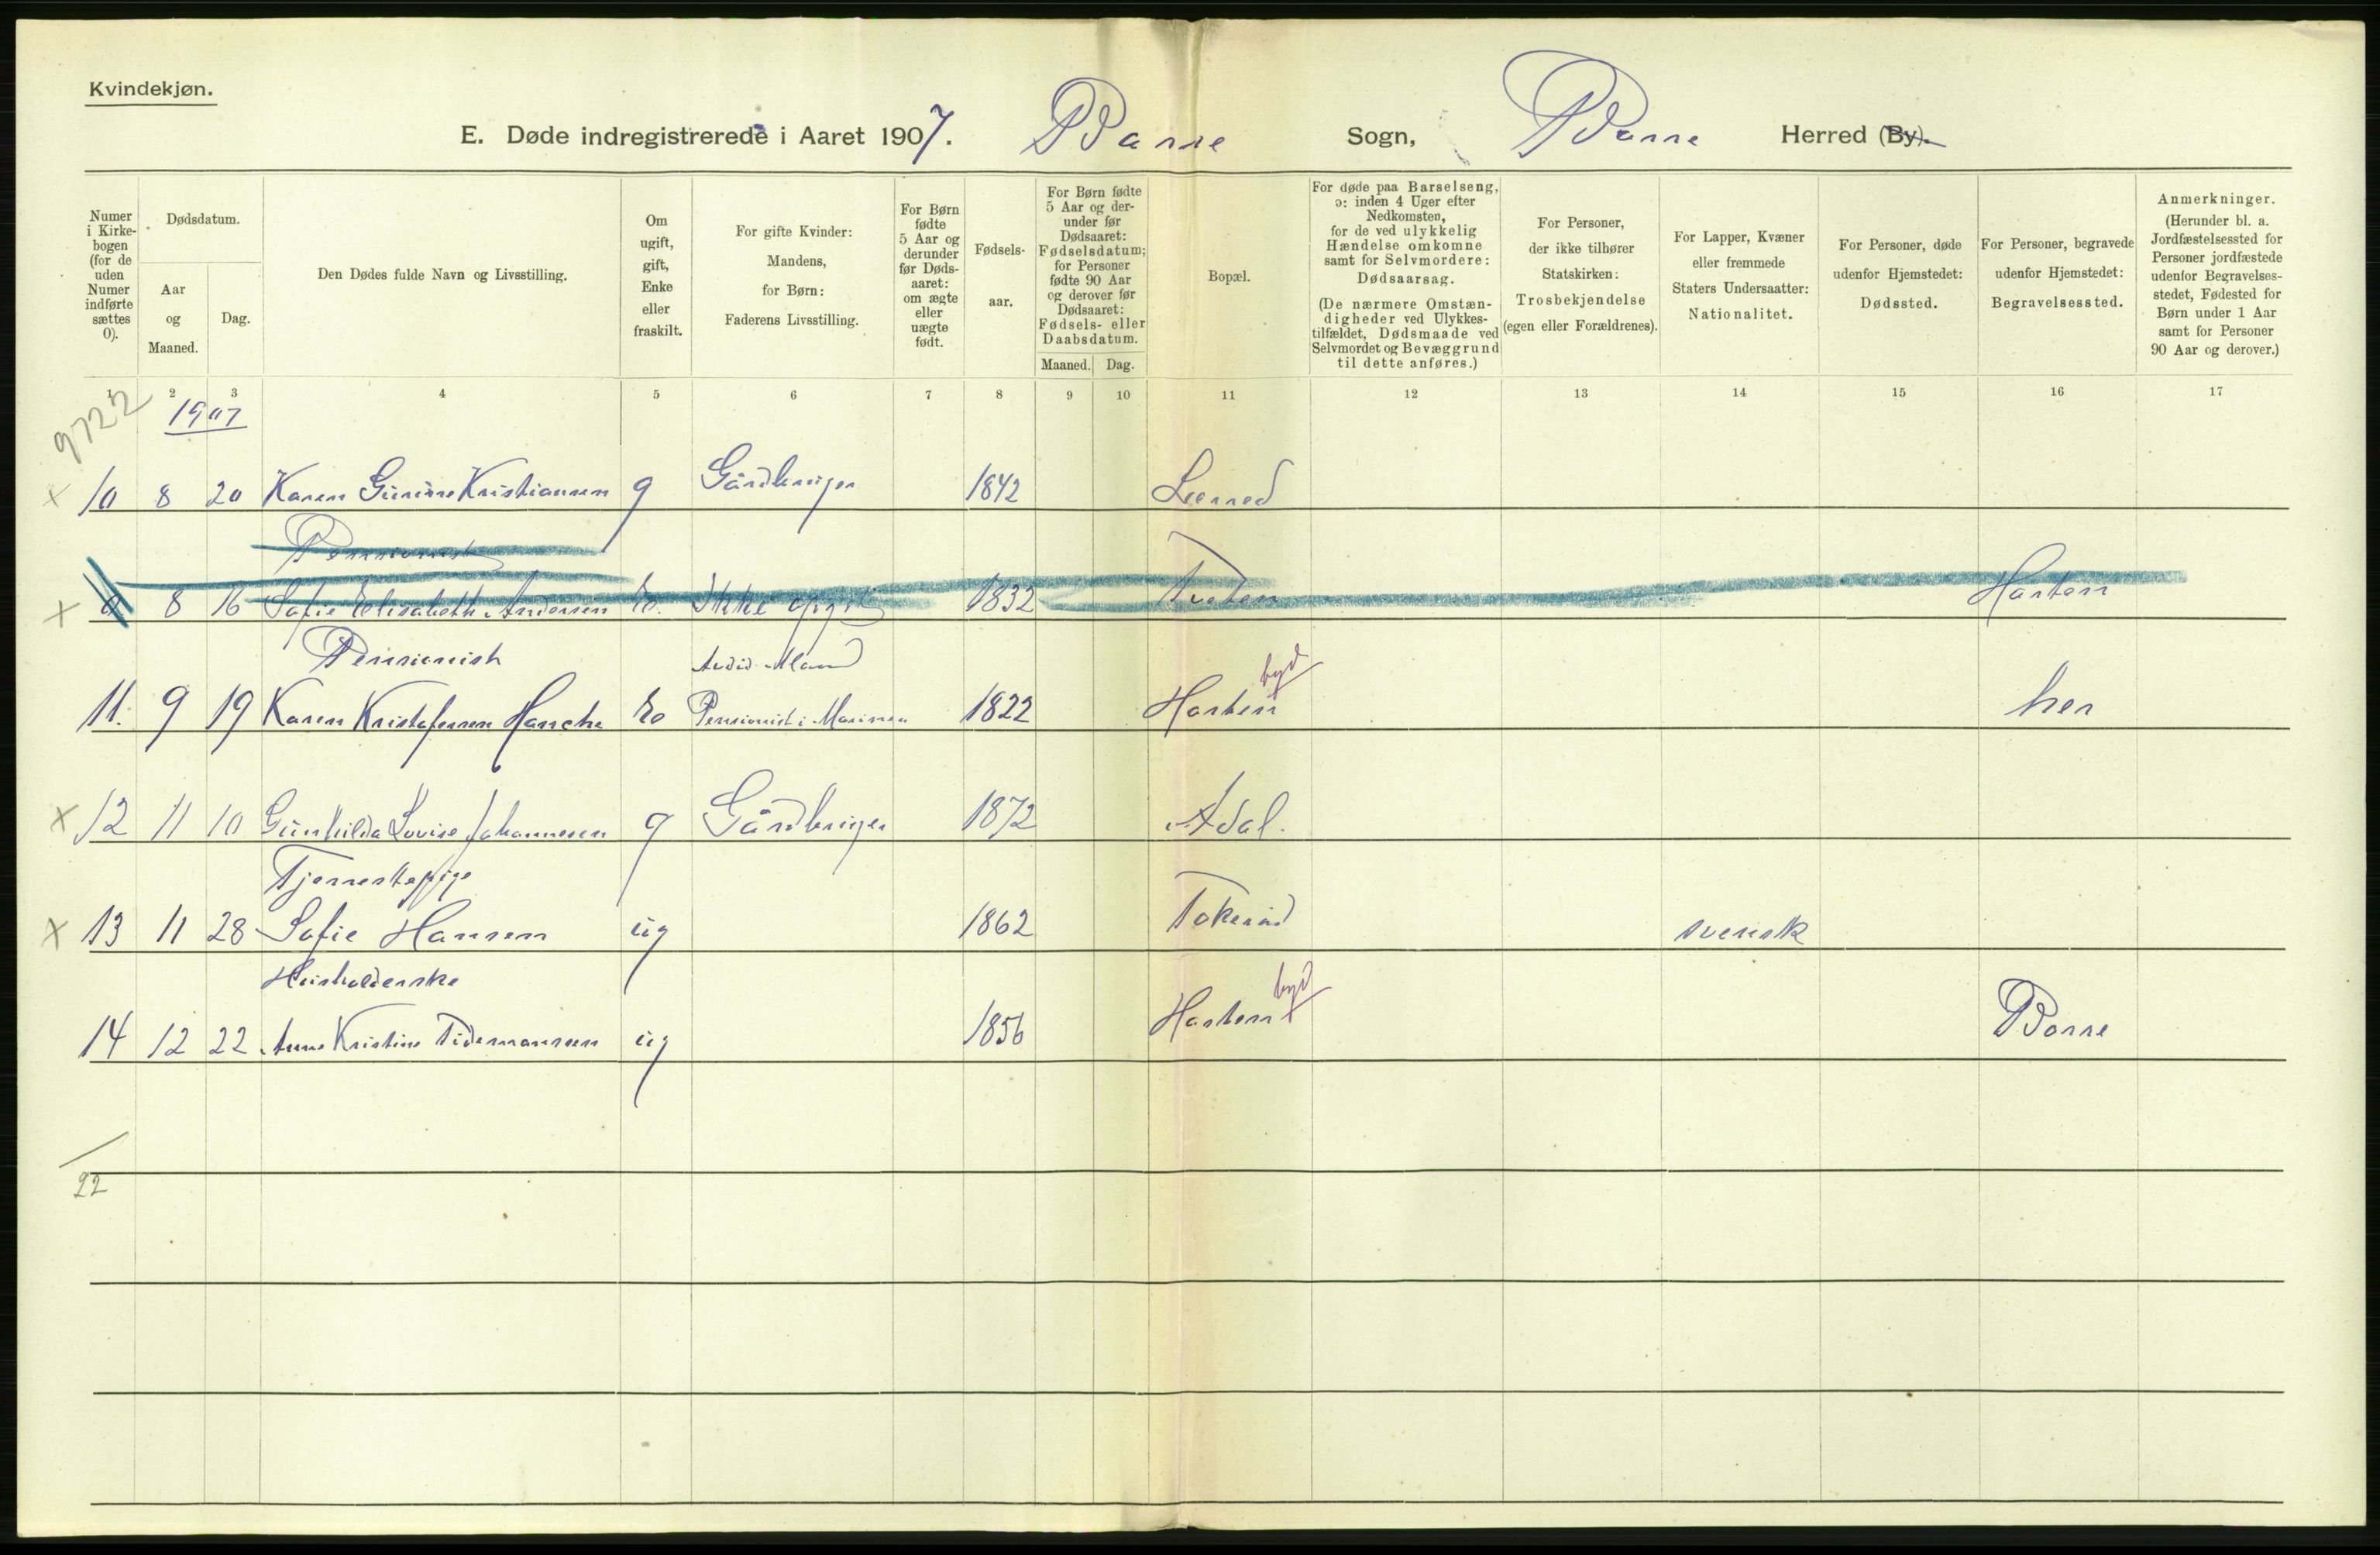 Kvindekjøn.
E. Døde indregistrerede i Aaret 1907. Borre Sogn, Borre Herred (By).
Numer i Kirke-bogen (for de uden Numer indførte sættes 0).
Dødsdatum.
Aar og Maaned.
Dag.
Den Dødes fulde Navn og Livsstilling.
Om ugift, gift, Enke eller fraskilt.
For gifte Kvinder: Mandens, for Børn: Faderens Livsstilling.
For Børn fødte 5 Aar og derunder før Døds-aaret: om ægte eller uægte født.
Fødsels-aar.
For Børn fødte 5 Aar og der-under før Dødsaaret: Fødselsdatum; for Personer fødte 90 Aar og derover før Dødsaaret: Fødsels- eller Daabsdatum.
Maaned. Dag.
Bopæl.
For døde paa Barselseng, ɔ: inden 4 Uger efter Nedkomsten, for de ved ulykkelig Hændelse omkomne samt for Selvmordere: Dødsaarsag.
(De nærmere Omstæn-digheder ved Ulykkes-tilfældet, Dødsmaade ved Selvmordet og Bevæggrund til dette anføres.)
For Personer, der ikke tilhører Statskirken: Trosbekjendelse (egen eller Forældrenes).
For Lapper, Kvæner eller fremmede Staters Undersaatter: Nationalitet.
For Personer, døde udenfor Hjemstedet: Dødssted.
For Personer, begravede udenfor Hjemstedet: Begravelsessted.
Anmerkninger. (Herunder bl. a. Jordfæstelsessted for Personer jordfæstede udenfor Begravelses-stedet, Fødested for Børn under 1 Aar samt for Personer 90 Aar og derover.)
1 2 3 4 5 6 7 8 9 10 11 12 13 14 15 16 17
9722
1907
x 10 8 20 Karen Gurine Kristiansen g Gårdbruger 1842
Pensionist
x 0 8 16 Sofie Elisabeth Andersen E. Ikke opgit 1832 Tveten Horten
Pensionist
11. 9 19 Karen Kristofersen Hanche E Pensionist i Marinen 1822 Horten byd her
x 12 11 10 Gunhilda Lovise Johannesen g Gårdbruger 1872 Adal.
Tjenestepige
x 13 11 28 Sofie Hansen ug 1862 Tokerød svensk
Husholderske
14 12 22 Anne Kristine Tidemansen ug 1856 Horten byd Borre
22